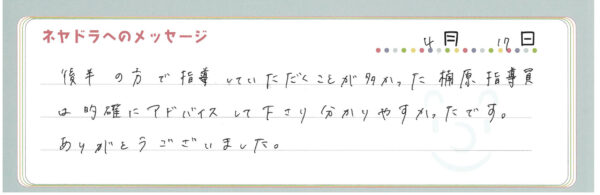 ネヤドラへのメッセージ
4月 17日
後半の方で指導していただくことが多かった楠原指導員
は的確にアドバイスして下さり分かりやすかったです。
ありがとうございました。